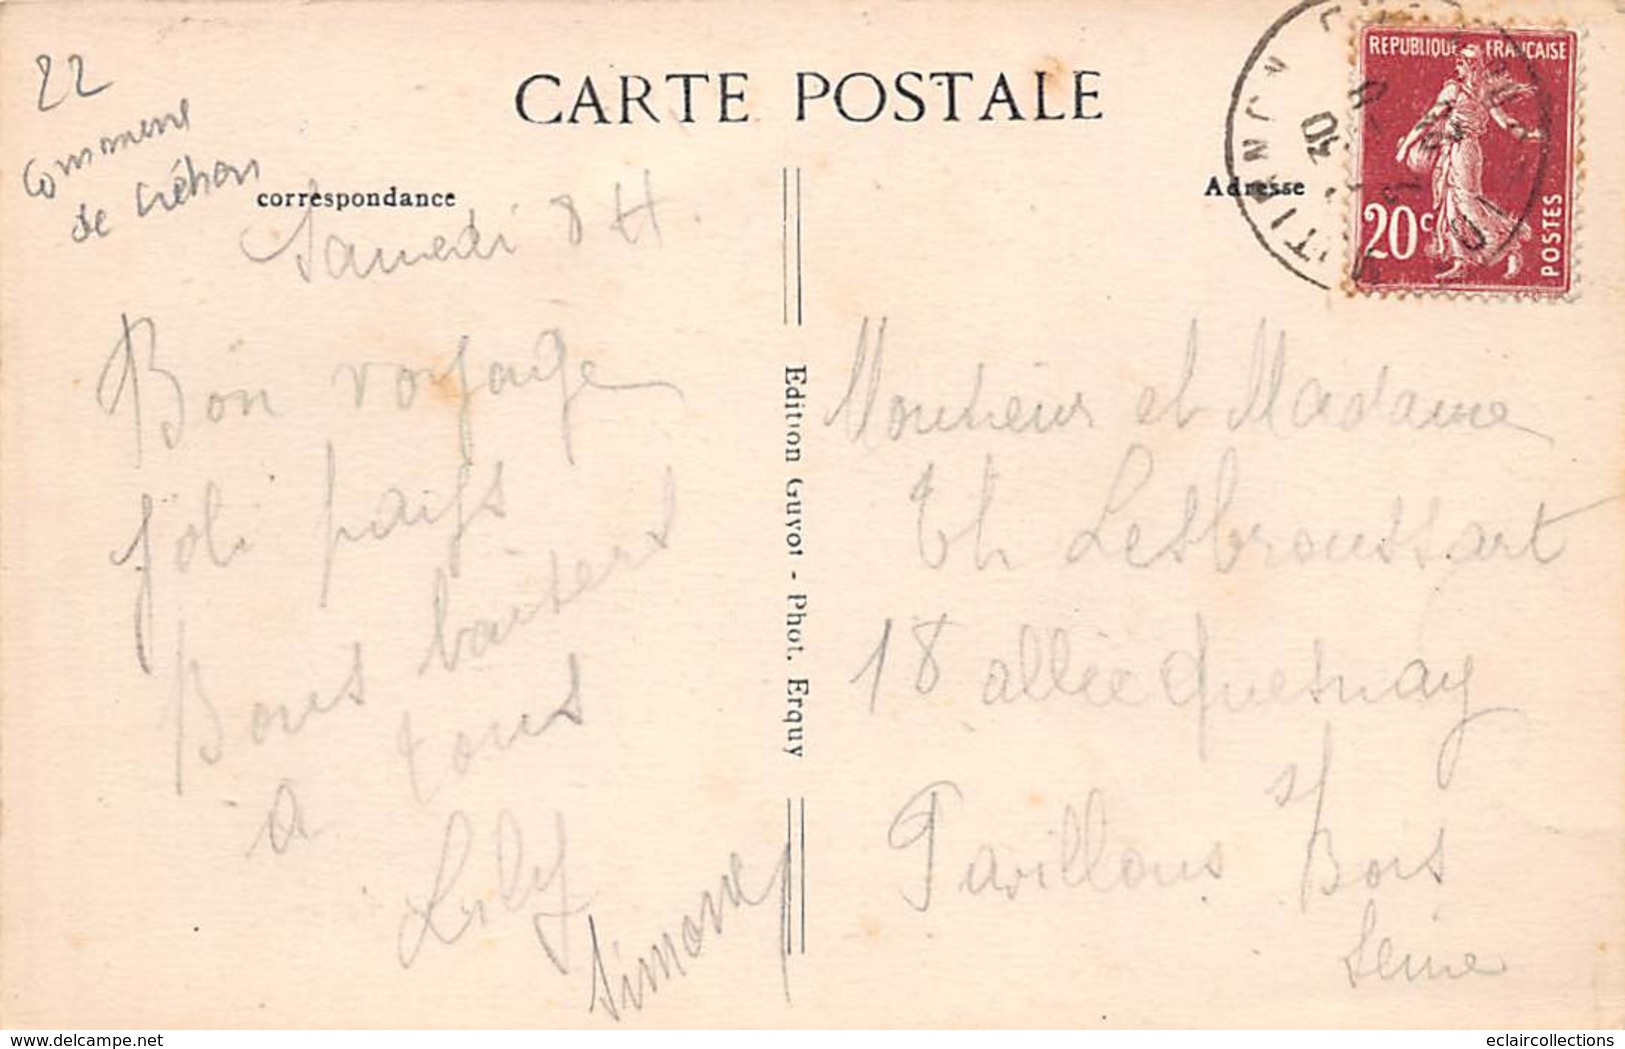 22
commune
de Créhen
CARTE POSTALE
correspondance
Adresse
REPUBLIQUE FRANÇAISE
20c
POSTES
Samedi 8 H.
Bon voyage
joli pays
Bons baisers
a tous
Lily
Simone
Edition Guyot - Phot. Erquy
Monsieur et Madame
Th Lesbroussart
18 allée Quesnay
Pavillons s/ Bois
Seine
delcampe.net
eclaircollections